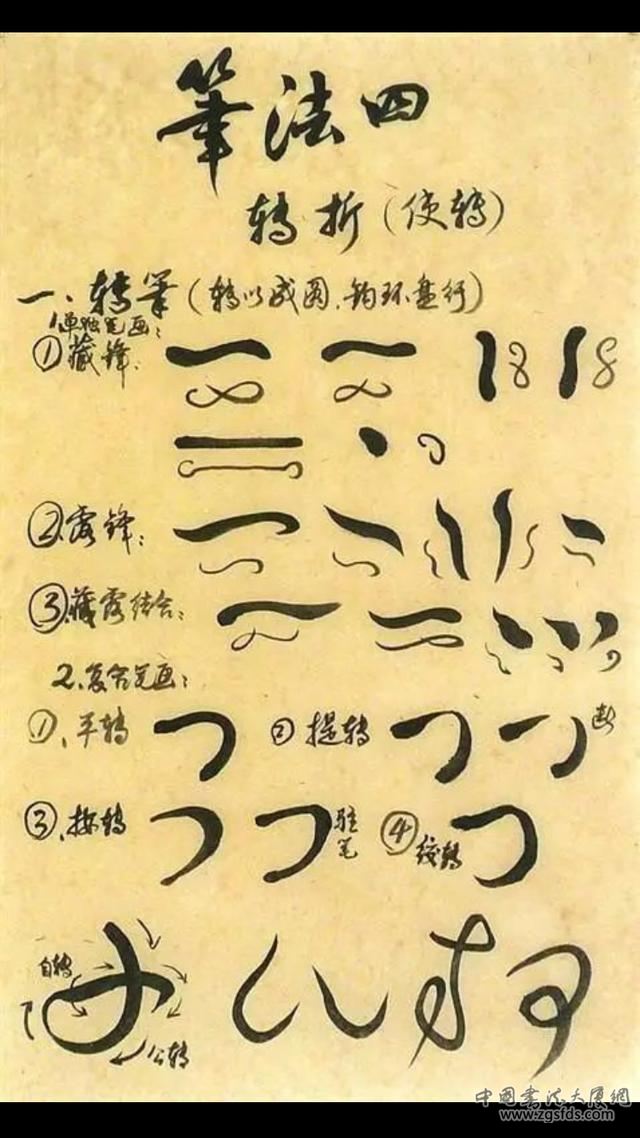 筆法四
转折(使转)
一、转筆(转以成圆、钩环盘行)
1.单独笔画:
①藏锋:
②露锋:
③藏露结合:
2.复合笔画:
①、平转 ②提转 断
③、按转 驻笔 ④绞转
自转
公转
中国书法大厦網
www.zgsfds.com